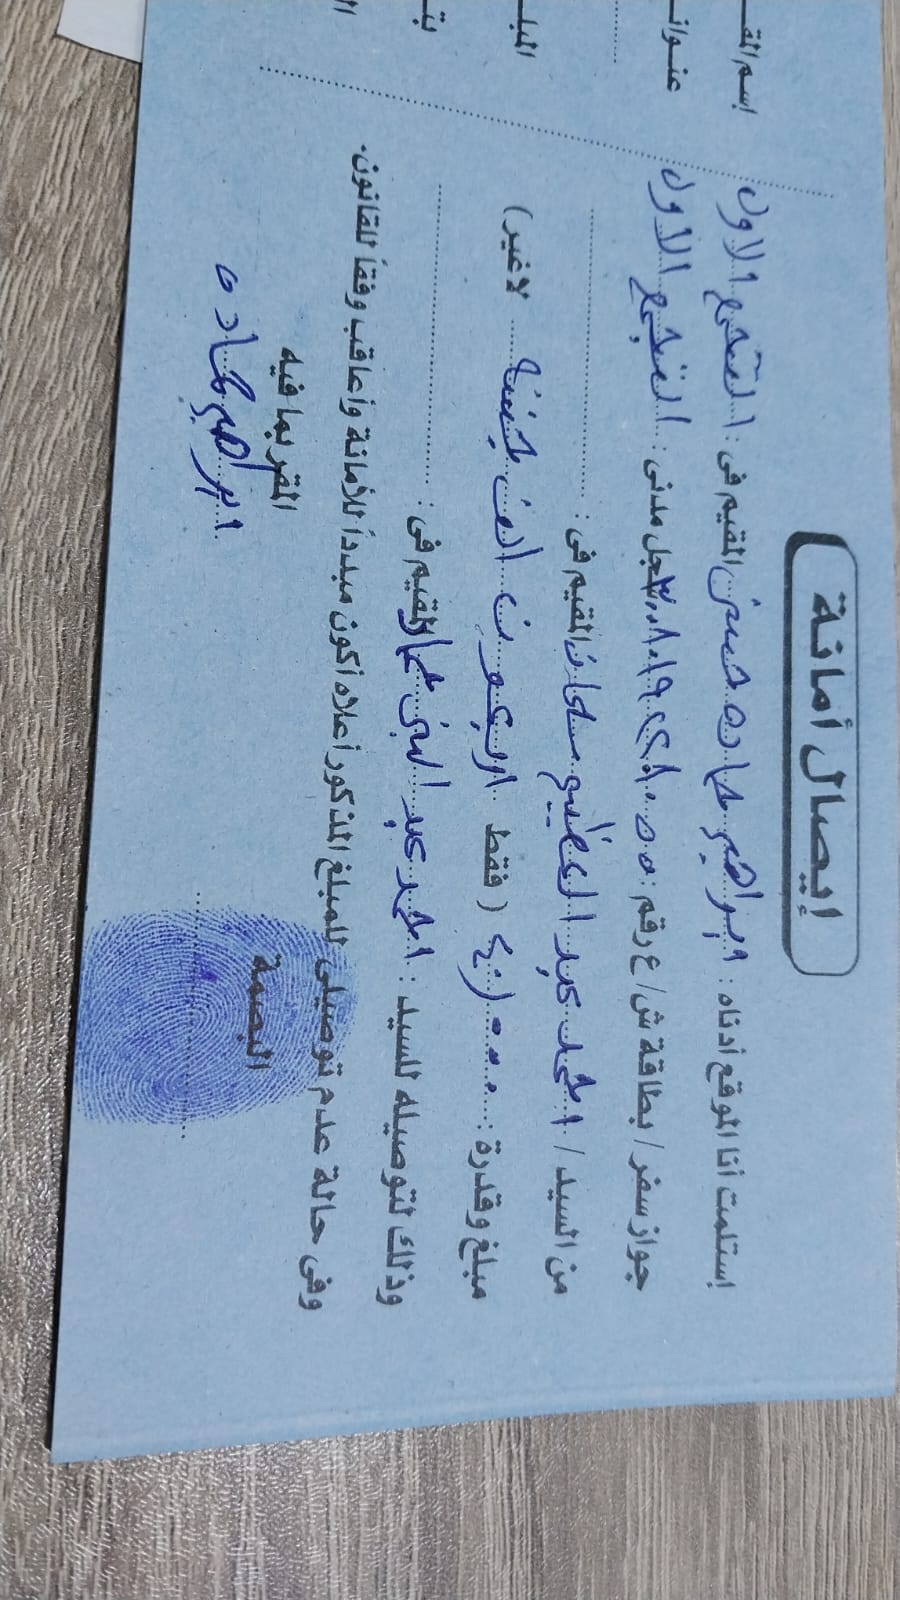 إيصال أمانة
إستلمت أنا الموقع أدناه : ابراهيم حماده حسن المقيم فى : التجمع الاول
جواز سفر / بطاقة ش / ع رقم : سجل مدنى : التجمع الاول
من السيد / احمد عبد العظيم المقيم فى :
مبلغ وقدرة : ٤٠٫٠٠٠ ( فقط اربعون الف جنيه لاغير)
وذلك لتوصيله للسيد : احمد عبد المقيم فى :
وفى حالة عدم توصيلى للمبلغ المذكور أعلاه أكون مبدداً للأمانة وأعاقب وفقاً للقانون.
المقر بما فيه
البصمة
ابراهيم حماده
إسم المقـ
عنوانـ
المبلـ